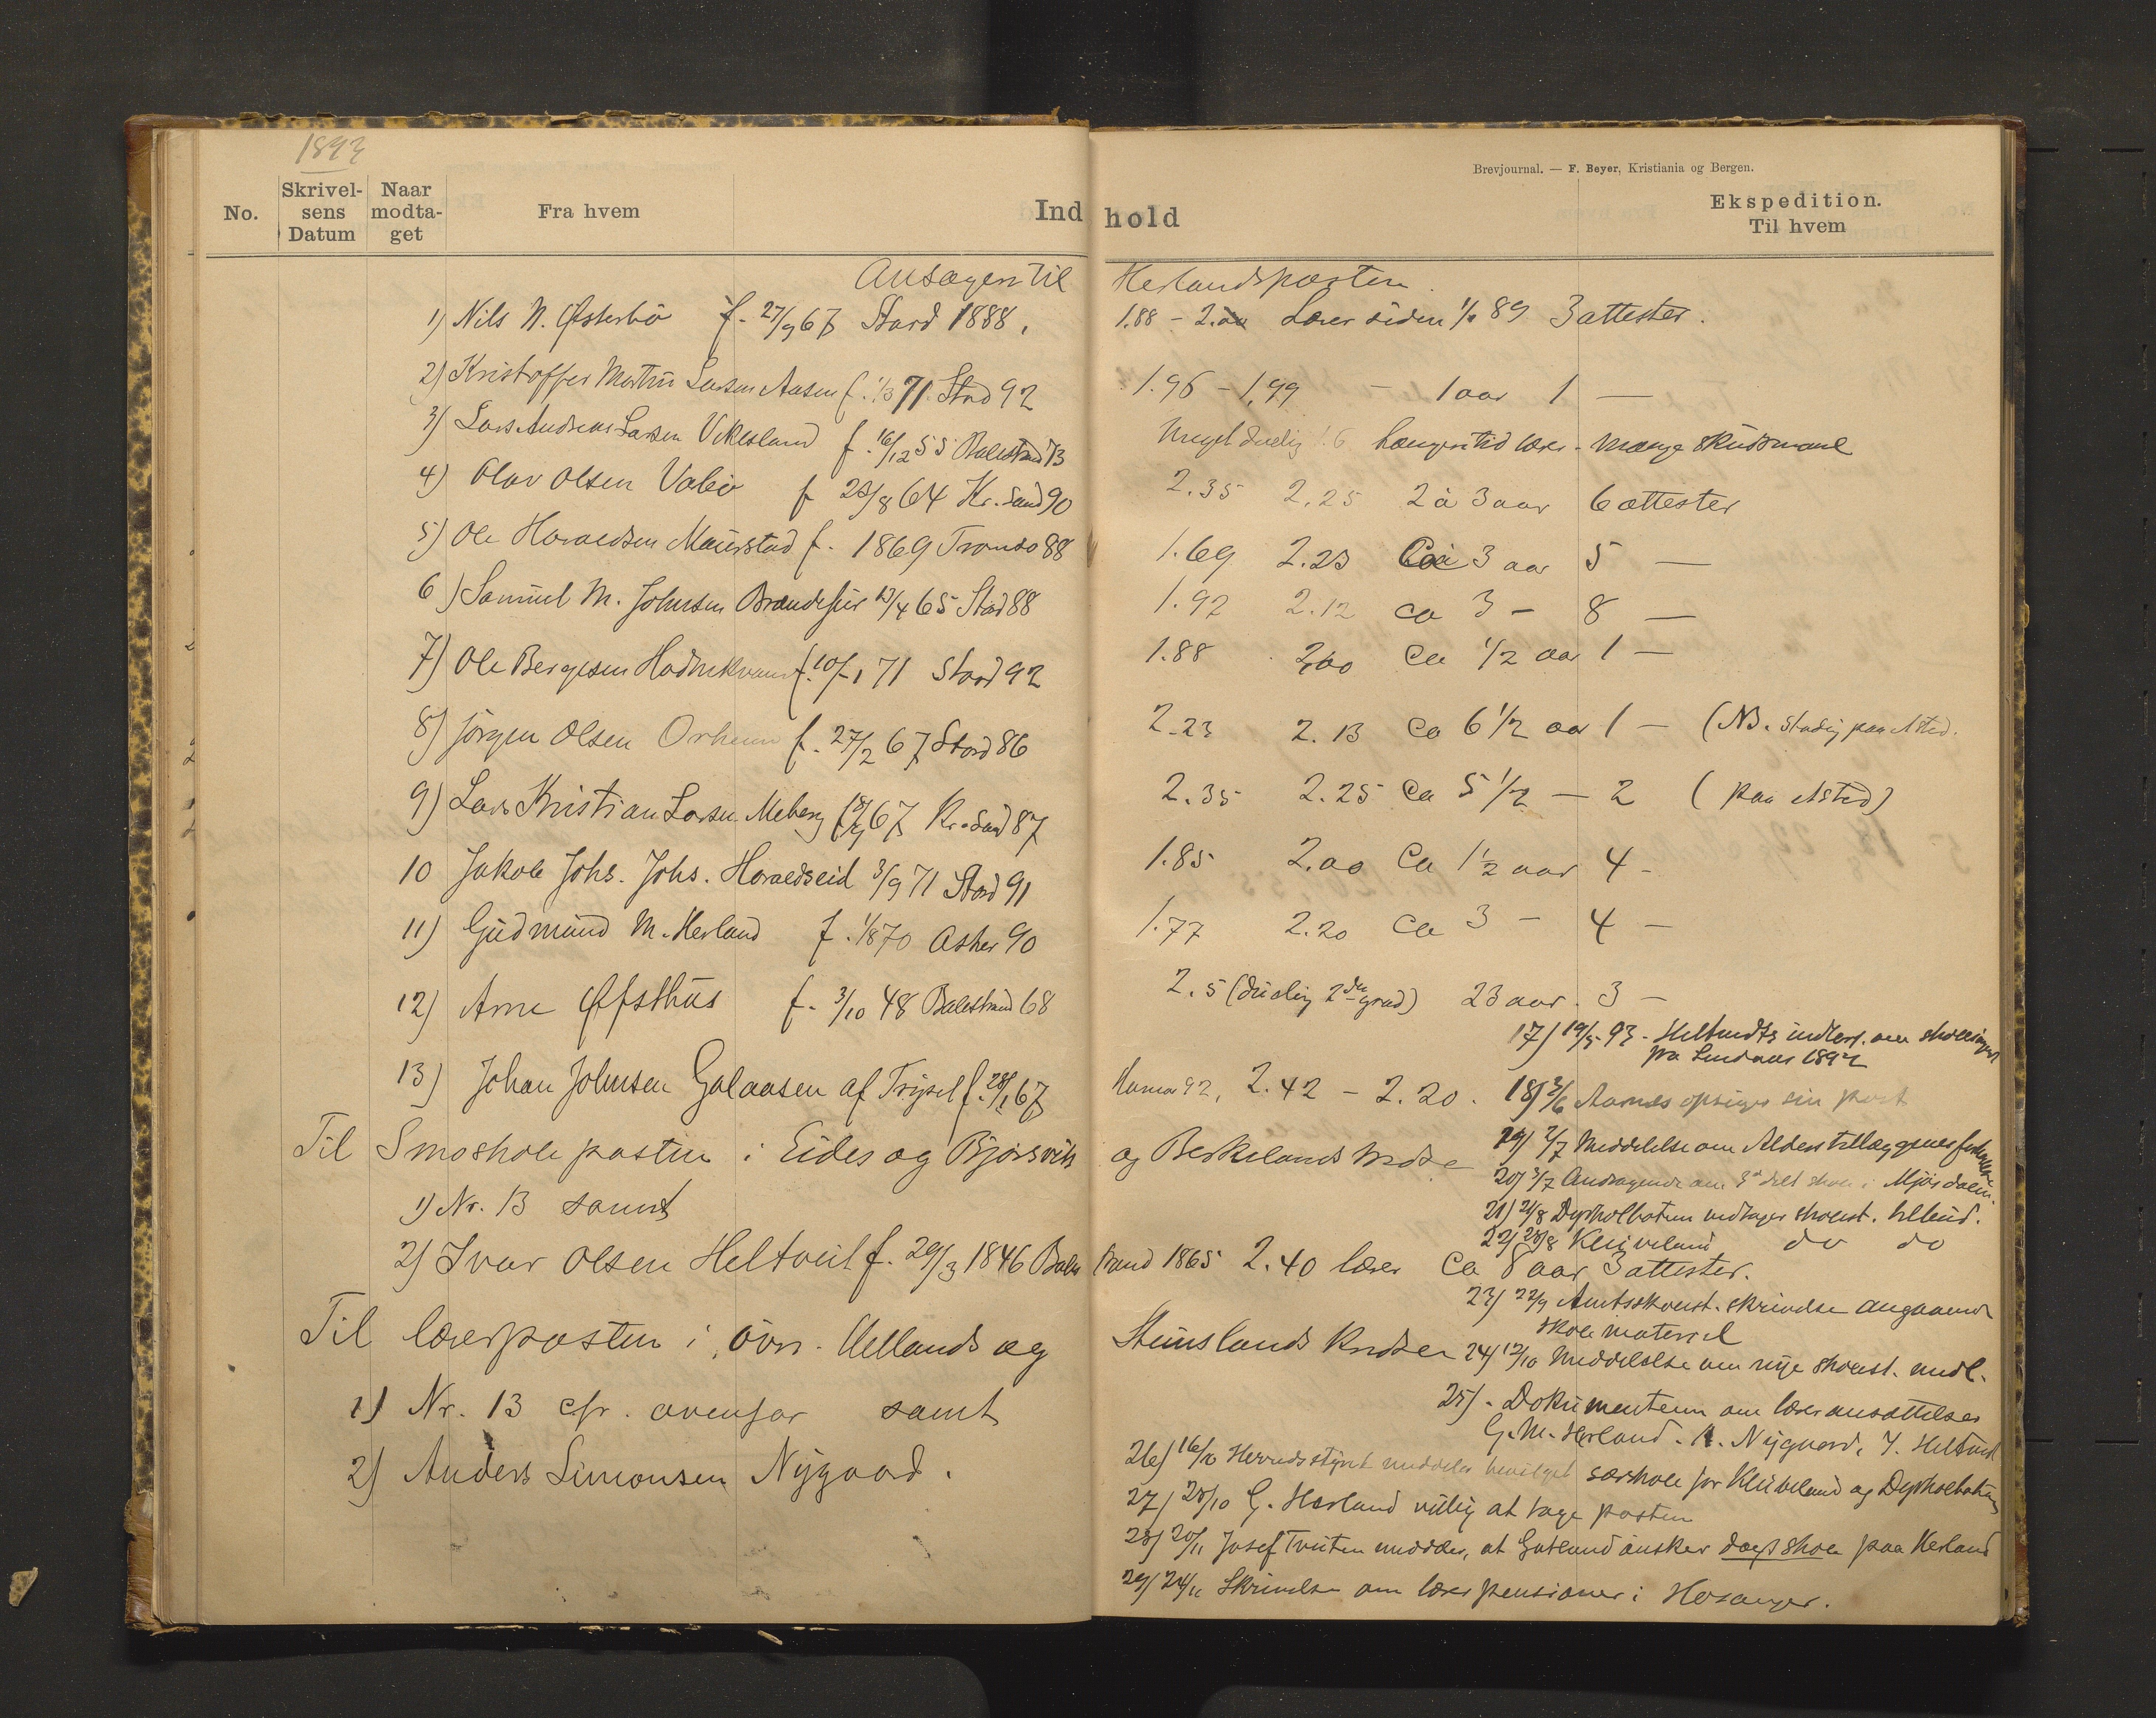 1893
Brevjournal. — F. Beyer, Kristiania og Bergen.
No. Skrivelsens Datum Naar modtaget Fra hvem Indhold Ekspedition. Til hvem
Ansøgere til Herlandsposten.
1) Nils N. Østerbö f. 27/9 67 Stord 1888. 1.88 - 2.00 Lærer siden 1/1 89 3 attester.
2) Kristoffer Martin Larsen Aasen f. 1/3 71 Stord 92 1.96 - 1.99 - 1 aar 1 —
3) Lars Andreas Larsen Vikesland f. 16/12 55 Balestrand 73 Meget duelig 1.6 længere tid lærer. Mange skudsmaal
4) Olav Olsen Valbö f 28/8 64 Kr.sand 90 2.35 2.25 2 à 3 aar 6 attester
5) Ole Haraldsen Maurstad f. 1869 Tromsö 88 1.69 2.23 Ca 3 aar 5 —
6) Samuel M. Johnsen 13/4 65 Stord 88 1.92 2.12 ca 3 - 8 —
7) Ole Bergesen f. 10/1 71 Stord 92 1.88 2,00 Ca 1/2 aar 1 —
8) Jörgen Olsen Orheim f. 27/2 67 Stord 86 2.23 2.13 Ca 6 1/2 aar 1 - (NB. stadig paa Asted.
9) Lars Kristian Larsen Meberg 67 Kr.sand 87 2.35 2.25 Ca 5 1/2 - 2 (paa Asted)
10 Jakob Johs. Johs. Haraldseid 3/9 71 Stord 91 1.85 2.00 Ca 1 1/2 aar 4 -
11) Gudmund M. Herland f. 1/8 70 Asker 90 1.77 2.20 Ca 3 - 4 —
12) Arne Øfsthus f. 3/10 48 Balestrand 68 2.5 (duelig 2den grad) 23 aar. 3 —
13) Johan Johnsen Galaasen af Trysil f. 28/1 67 Hamar 92, 2.42 - 2.20.
Til Smoskoleposten i Eides og Bjørsviks og Berkelands krdse
1) Nr. 13 samt
2) Ivar Olsen Heltveit f. 29/3 1846 Balestrand 1865 2.40 lærer Ca 8 aar 3 attester.
Til lærerposten i övr. Hellands og Steinslands krdser
1) Nr. 13 cfr. ovenfor samt
2) Anders Simonsen Nygaard.
17) 19/5 93. Heltveits indber. om skolelinjen
fra Lindaas 1892
18) 3/6 Aarnes opsiger sin post
19) 2/7 Meddelelse om Alderstillæggenes
20) 3/7 Andragende om delt skole i Mjösdalen.
21) 21/8 Dyrkolbotn vedtager skolest. tilbud.
22) 28/8 Kleiveland do do
23) 22/9 Amtsskolest. skrivelse angaaende
skolemateriel
24) 12/10 Meddelelse om nye skolest. medl.
25) - Dokumenterne om læreransættelser
G. M. Herland. A. Nygaard, I. Heltveit
26) 16/10 Herredsstyret meddeler bevilget særskole for Kleiveland og Dyrkolbotn
27) 28/10 G. Herland villig at tage posten
28) 20/11 Josef Tveiten meddeler, at Gutland önsker dagskole paa Herland
29) 24/11 Skrivelse om lærerpensioner i Hosanger.